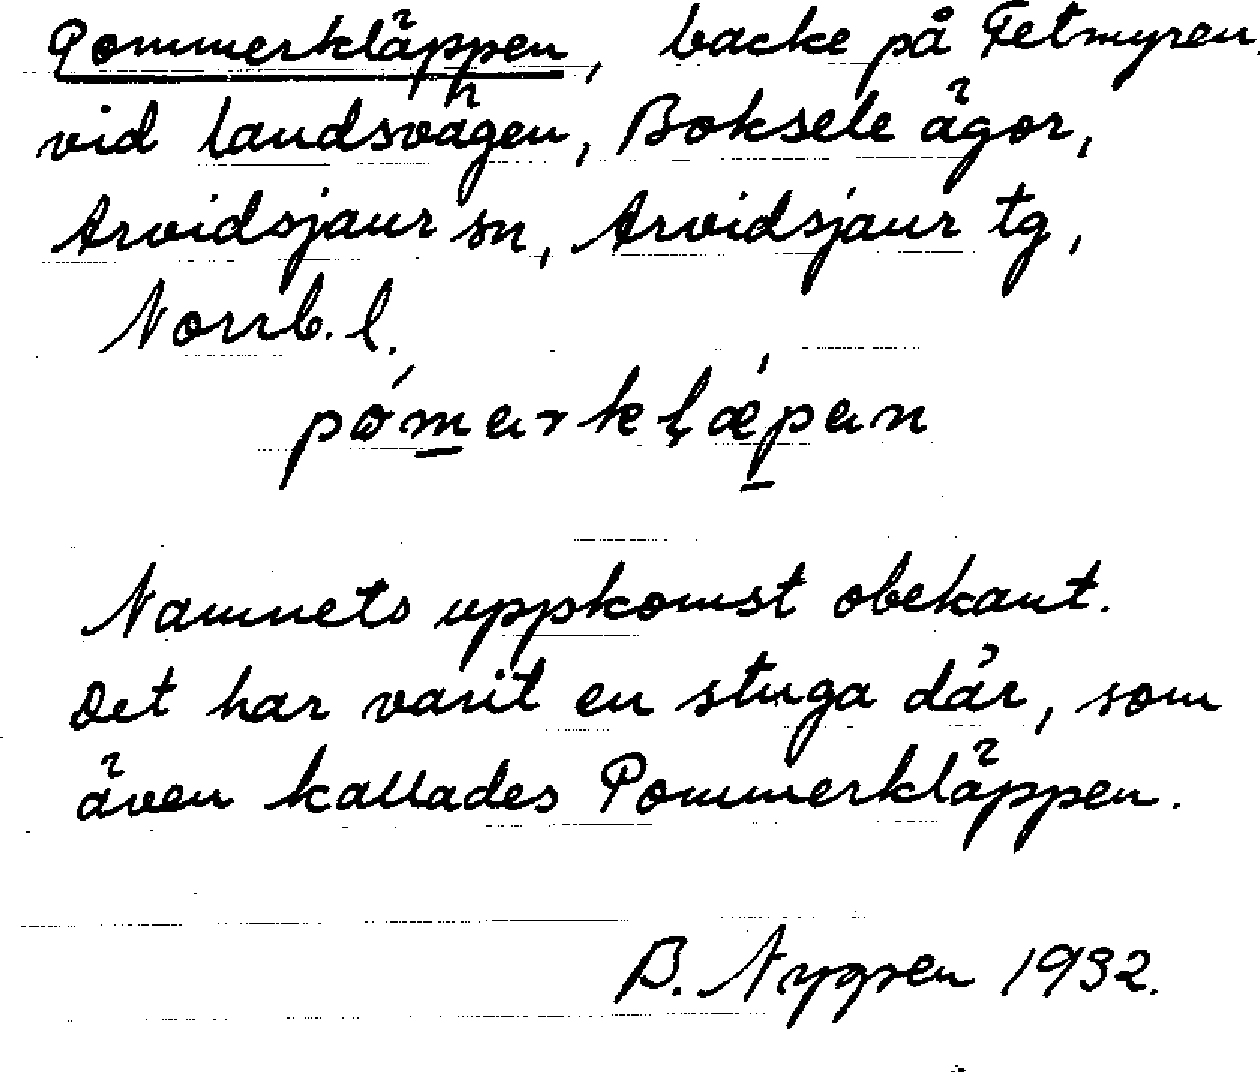 Pommerkläppen, backe på Fetmyren,
vid landsvägen, Boksele ägor,
Arvidsjaur sn, Arvidsjaur tg,
Norrb. l.
pómarklǽpan
Namnets uppkomst obekant.
Det har varit en stuga där, som
även kallades Pommerkläppen.
B. Nygren 1932.